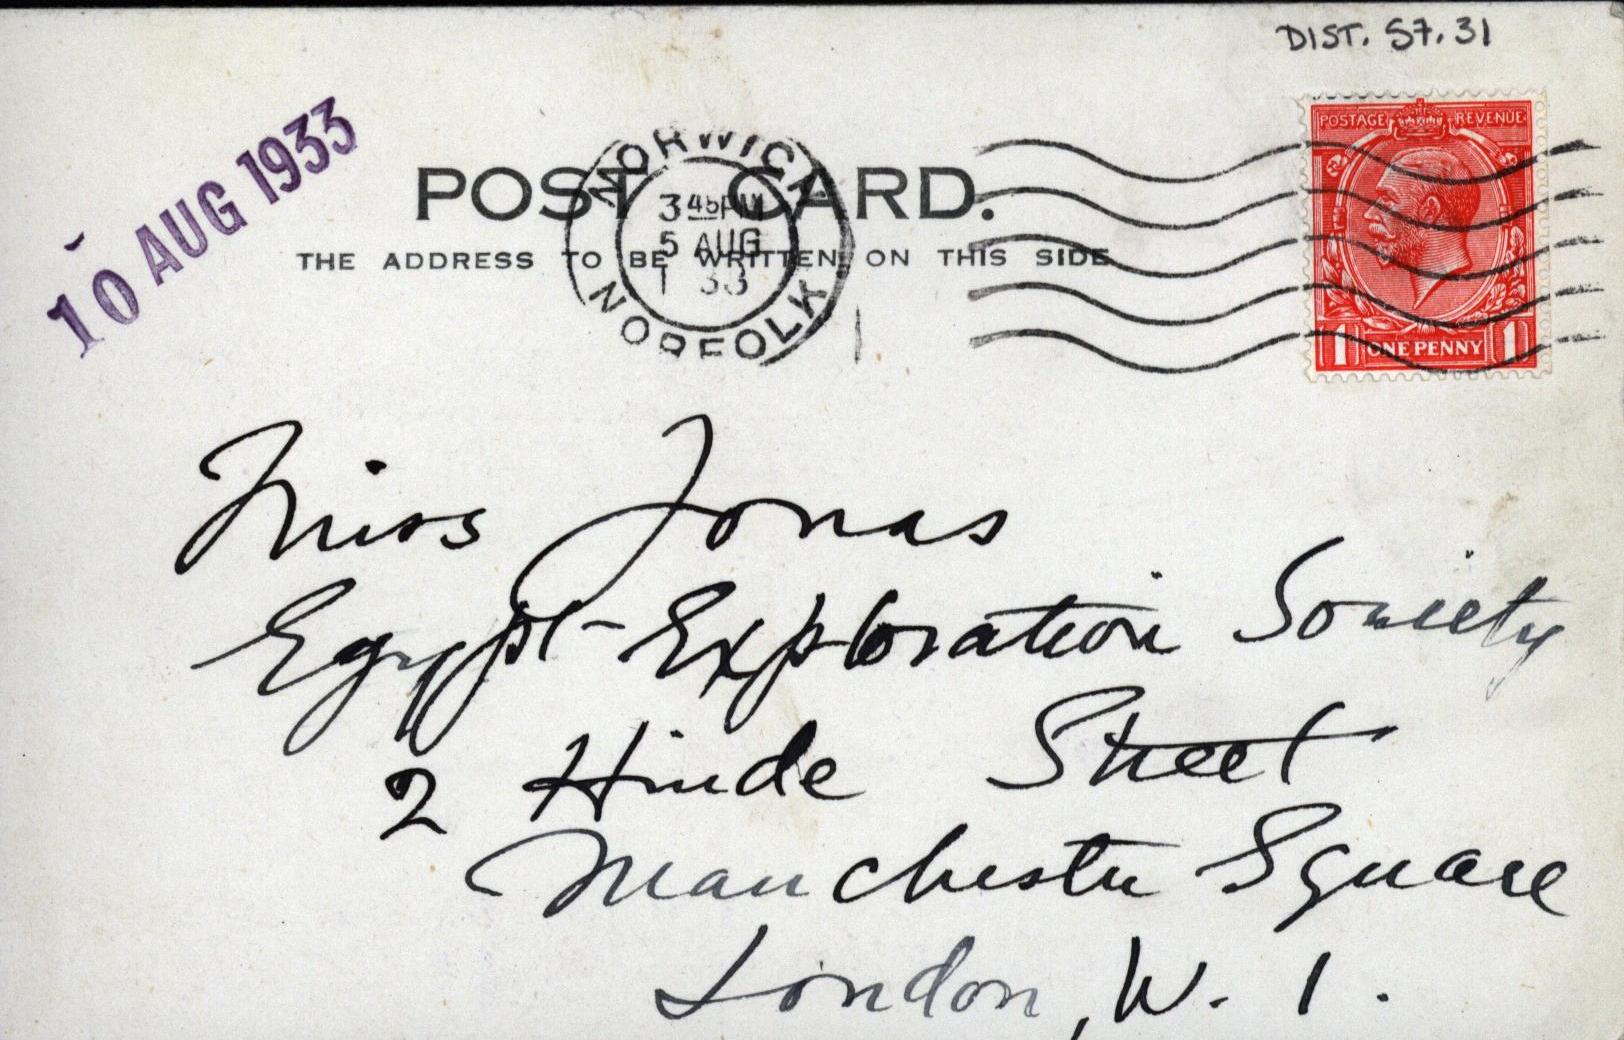 DIST. 57.31
10 AUG 1933
POSTAGE REVENUE
ONE PENNY
1 1
NORWICH
3 45 PM
5 AUG
1 33
NORFOLK
POST CARD.
THE ADDRESS TO BE WRITTEN ON THIS SIDE
Miss Jonas
Egypt Exploration Society
2 Hinde Street
Manchester Square
London, W. 1.